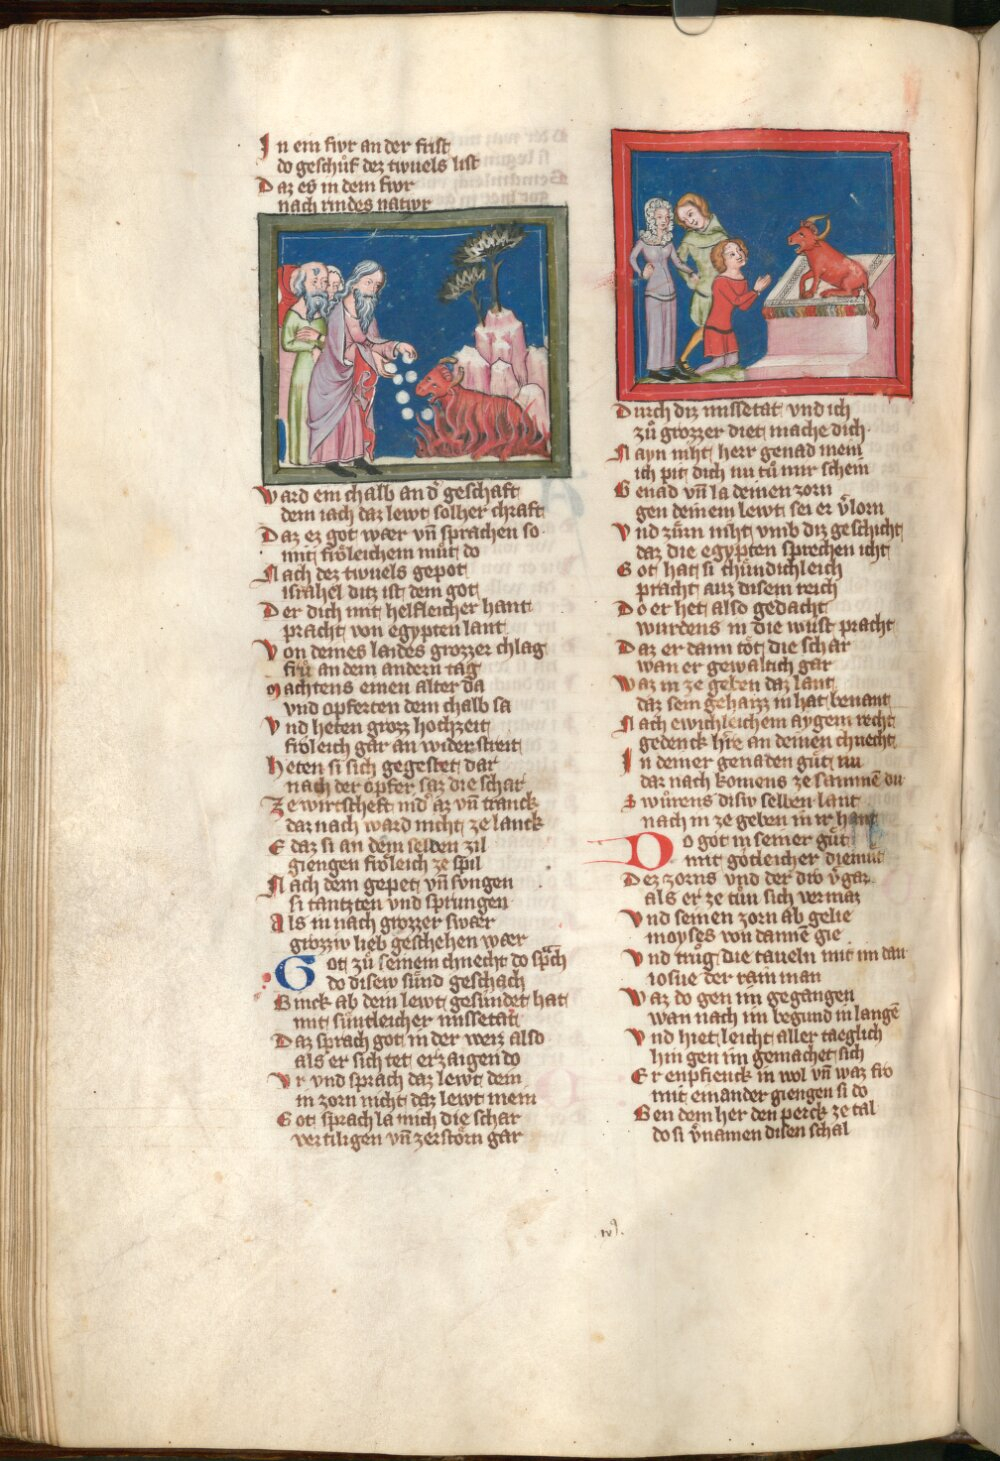 In ein fiwr an der frist
do geschuͦf dez tiwuels list
Daz es in dem fiwr
nach rindes natiwr
Ward ein chalb an d᾽ geschaft
dem iach daz lewt solher chraft
Daz ez got wær vn̄ sprachen so
mit froͤleichem muͤt do
Nach dez tiwuels gepot
israhel ditz ist dem got
Der dich mit helfleicher hant
pracht von egypten lant
Von deines laides grozzer chlag
fruͤ an dem andern tag
Machtens einen alter da
vnd opferten dem chalb sa
Vnd heten grozz hochzeit
froͤleich gar an widerstreit
Heten si sich gegestet dar
nach der opfer saz die schar
Ze wirtscheft vnd az vn̄ tranck
dar nach ward nicht ze lanck
E daz si an dem selben zil
giengen froͤleich ze spil
Nach dem gepet vn̄ sungen
si tantzten vnd sprungen
Als in nach grozzer swær
grozziv lieb geschehen wær
Got zuͦ seinem chnecht do sp̄ch
do disew suͤnd geschach
Ginck ab dem lewt gesundet hat
mit suntleicher missetat
Daz sprach got in der weiz also
als er sich tet erzaigen do
Vr vnd sprach daz lewt dein
in zorn nicht daz lewt mein
Got sprach la mich die schar
vertiligen vn̄ zerstoͤrn gar
Durch diz missetat vnd ich
zuͦ grozzer diet mache dich
Nayn niht herr genad mein
ich pit dich nu tuͦ mir schein
Genad vn̄ la deinen zorn
gen deinem lewt sei er v᾽lorn
Vnd zuͤrn niht vmb diz geschicht
daz die egypten sprechen icht
Got hat si chuͤndichleich
pracht auz disem reich
Do er het also gedacht
wurdens in die wuͤst pracht
Daz er dann toͤt die schar
wan er gewaltich gar
Waz in ze geben daz lant
daz sein gehaizz in hat benant
Nach ewichleichem aygem recht
gedenck hie an deinen chnecht
In deiner genaden guͤt nu
dar nach komens ze samme᷑ du
Swuͤrens disiv selben lant
nach in ze geben in ir hant
Do got in seiner guͤt
mit goͤtleicher diemuͤt
Dez zorns vnd der dro v᾽gaz
als er ze tuͦn sich vermaz
Vnd seinen zorn ab gelie
moyses von danne᷑ gie
Vnd truͦg die taueln mit im dan
iosue der rain man
Waz do gen im gegangen
wan nach im begund in lange᷑
Vnd hiet leicht aller taeglich
hin gen im gemachet sich
Er enpfienck in wol vn̄ waz fro
mit einander giengen si do
Gen dem her den perck ze tal
do si v᾽namen disen schal